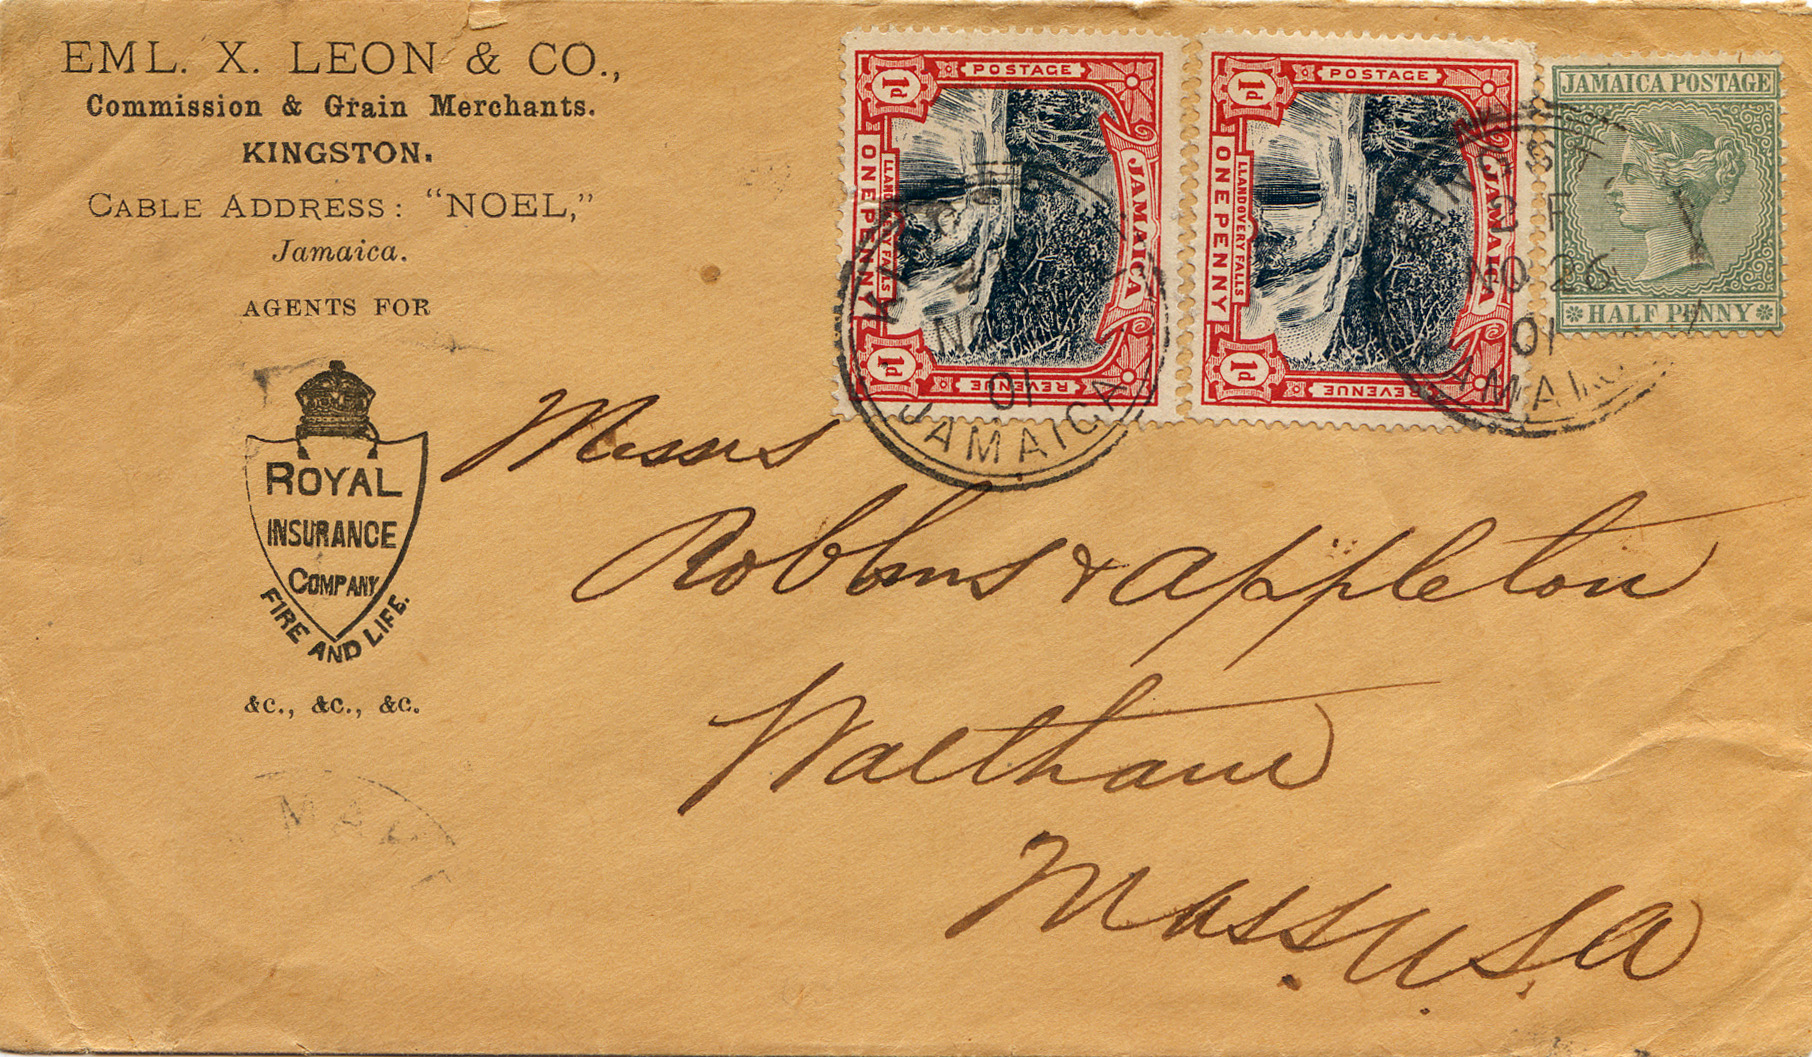 EML. X. LEON & CO.,
Commission & Grain Merchants.
KINGSTON.
CABLE ADDRESS: "NOEL,"
Jamaica.
AGENTS FOR
ROYAL
INSURANCE
COMPANY
FIRE AND LIFE.
&C., &C., &C.
POSTAGE
1d 1d
JAMAICA
LLANDOVERY FALLS
ONE PENNY
REVENUE
POSTAGE
1d 1d
JAMAICA
LLANDOVERY FALLS
ONE PENNY
REVENUE
JAMAICA POSTAGE
HALF PENNY
NO
01
JAMAICA
NO 26
01
Messrs
Robbins & Appleton
Waltham
Mass. U.S.A